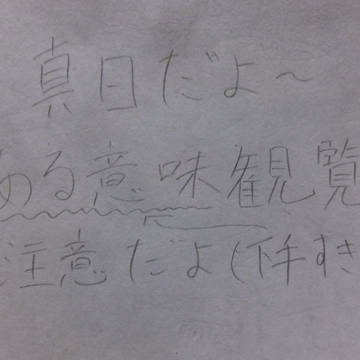 真日だよ～
ある意味観覧
注意だよ(下手すき